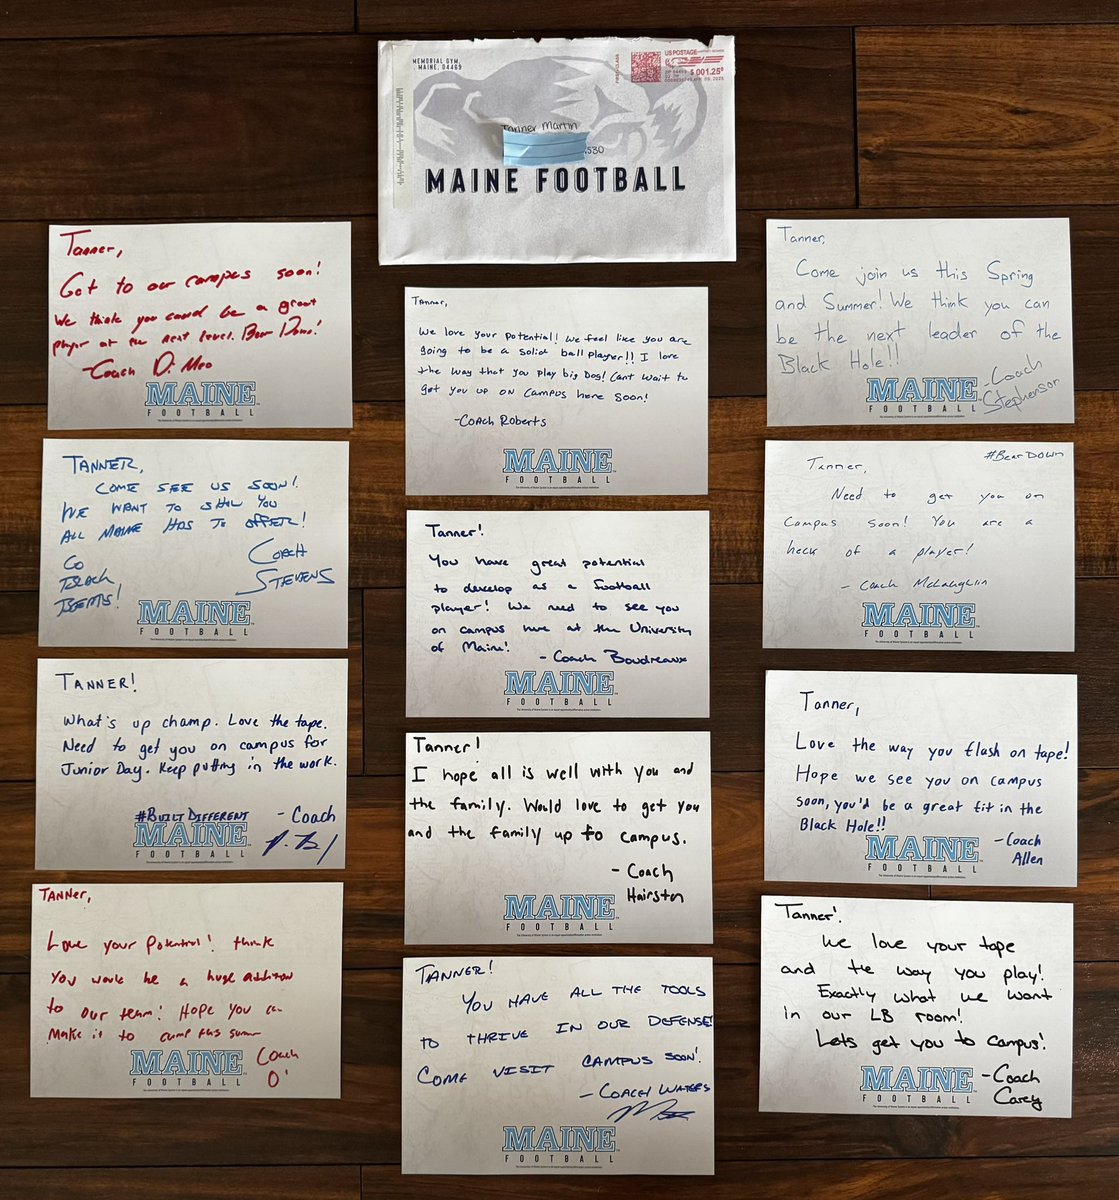 MEMORIAL GYM,
, MAINE, 04469
FIRST-CLASS
US POSTAGE
$ 001.25⁰
Tanner Martin
530
MAINE FOOTBALL
Tanner,
Get to our campus soon!
We think you could be a great
player at the next level. Bear Down!
-Coach D. Moo
MAINE
FOOTBALL
TANNER,
COME SEE US SOON!
WE WANT TO SHOW YOU
ALL MAINE HAS TO OFFER!
GO
BLACK
BEARS!
COACH
STEVENS
MAINE
FOOTBALL
TANNER!
What's up champ. Love the tape.
Need to get you on campus for
Junior Day. Keep putting in the work.
#BUILTDIFFERENT
- Coach
MAINE
FOOTBALL
TANNer,
Love your Potential! think
you would be a huge addition
to our team! Hope you can
Make it to camp this summ
Coach
O'
MAINE
FOOTBALL
Tanner,
We love your potential! We feel like you are
going to be a solid ball player!! I love
the way that you play big dog! Cant wait to
get you up on campus here soon!
-Coach Roberts
MAINE
FOOTBALL
Tanner!
You have great potential
to develop as a football
player! We need to see you
on campus here at the University
of Maine!
- Coach Boudreaux
MAINE
FOOTBALL
Tanner!
I hope all is well with you and
the family. Would love to get you
and the family up to campus.
- Coach
Hairston
MAINE
FOOTBALL
TANNER!
YOU HAVE ALL THE TOOLS
TO THRIVE IN OUR DEFENSE!
COME VISIT CAMPUS SOON!
- COACH WATERS
MAINE
FOOTBALL
Tanner,
Come join us this Spring
and Summer! We think you can
be the next leader of the
Black Hole!!
-Coach
Stephenson
MAINE
FOOTBALL
#BearDOWN
Tanner,
Need to get you on
campus soon! You are a
heck of a player!
- Coach McLaughlin
MAINE
FOOTBALL
Tanner,
Love the way you flash on tape!
Hope we see you on campus
soon, you'd be a great fit in the
Black Hole!!
-Coach
Allen
MAINE
FOOTBALL
Tanner!
We love your tape
and the way you play!
Exactly what we want
in our LB room!
Lets get you to campus!
-Coach
Carey
MAINE
FOOTBALL